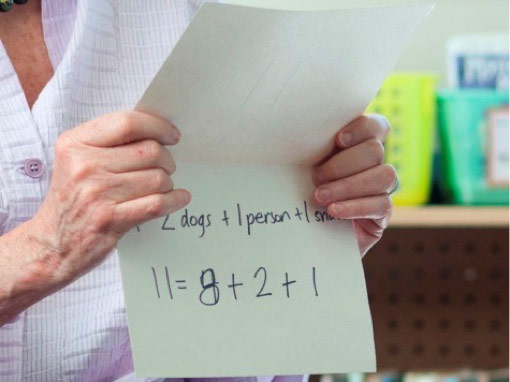 2 dogs + 1 person + 1
11 = 8 + 2 + 1